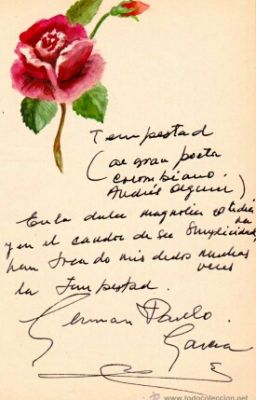 Tempestad
(al gran poeta
colombiano.
Andrés Olguin)
En la dulce magnolia
y en el candor de su simplicidad,
han tocado mis dedos muchas
veces
la Tempestad.
German Pardo
Garcia
www.todocoleccion.net